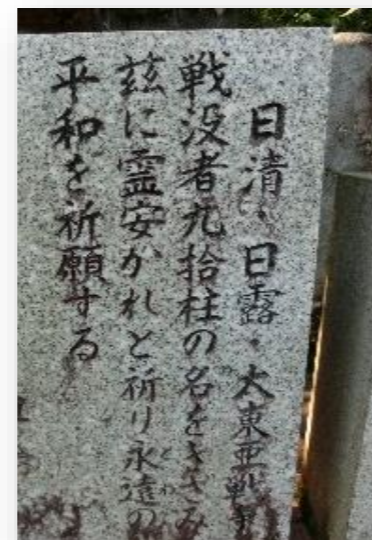 日清・日露・大東亜戦争
戦没者九拾柱の名をきざみ
茲に霊安かれと祈り永遠の
平和を祈願する